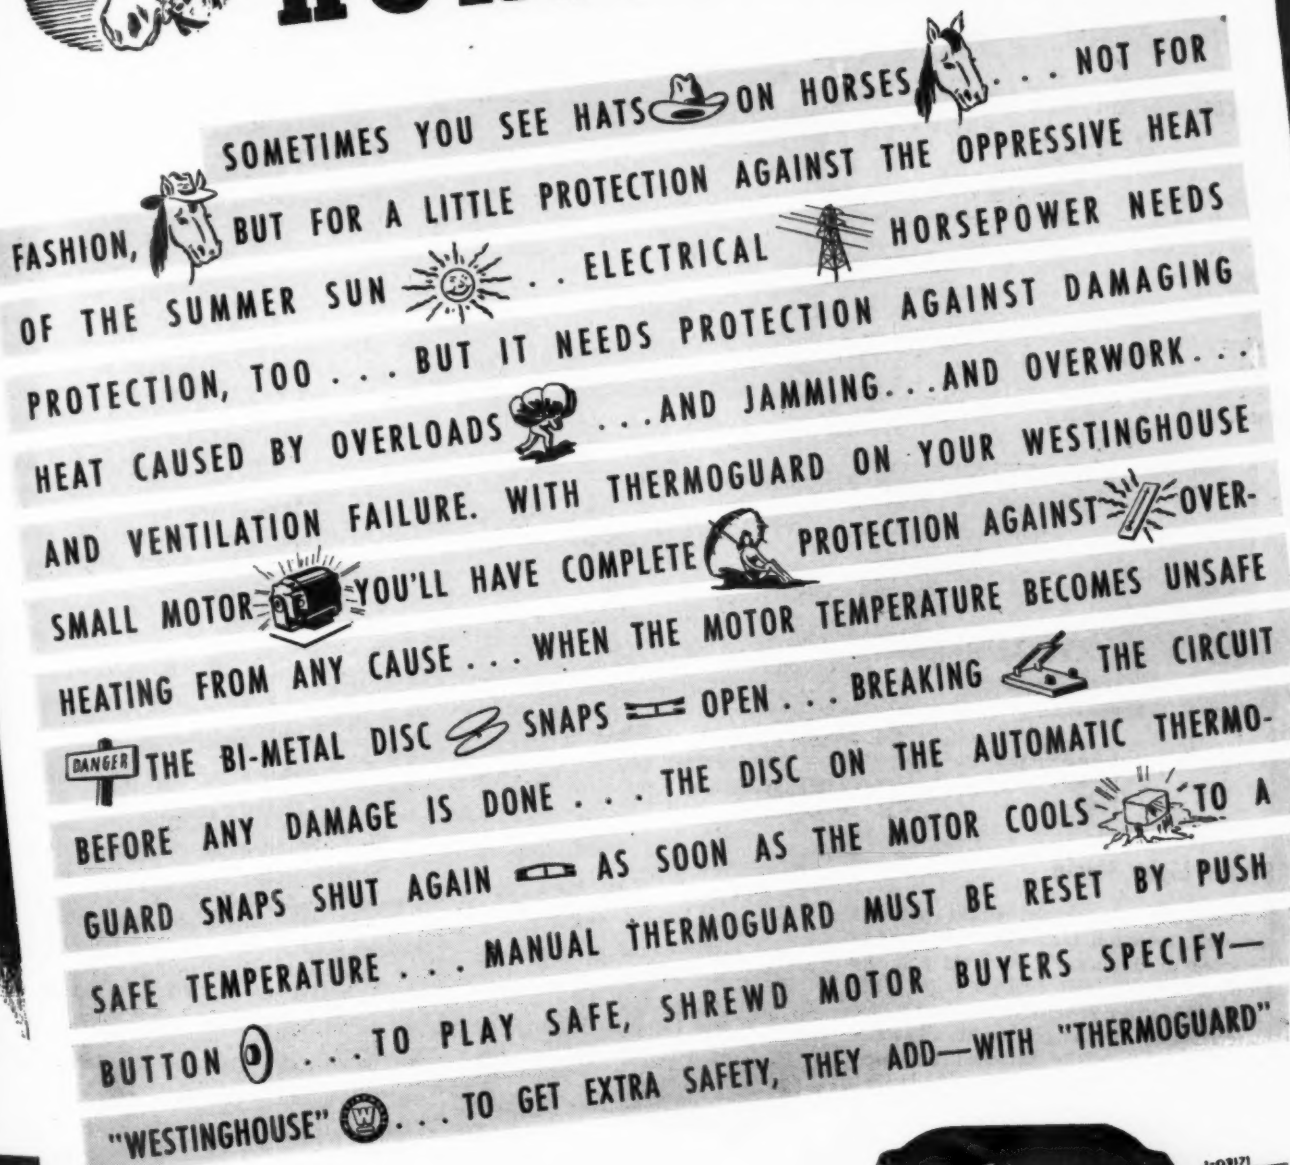 SOMETIMES YOU SEE HATS ON HORSES . . . NOT FOR
FASHION, BUT FOR A LITTLE PROTECTION AGAINST THE OPPRESSIVE HEAT
OF THE SUMMER SUN . . . ELECTRICAL HORSEPOWER NEEDS
PROTECTION, TOO . . . BUT IT NEEDS PROTECTION AGAINST DAMAGING
HEAT CAUSED BY OVERLOADS . . . AND JAMMING . . . AND OVERWORK . . .
AND VENTILATION FAILURE. WITH THERMOGUARD ON YOUR WESTINGHOUSE
SMALL MOTOR YOU'LL HAVE COMPLETE PROTECTION AGAINST OVER-
HEATING FROM ANY CAUSE . . . WHEN THE MOTOR TEMPERATURE BECOMES UNSAFE
DANGER THE BI-METAL DISC SNAPS OPEN . . . BREAKING THE CIRCUIT
BEFORE ANY DAMAGE IS DONE . . . THE DISC ON THE AUTOMATIC THERMO-
GUARD SNAPS SHUT AGAIN AS SOON AS THE MOTOR COOLS TO A
SAFE TEMPERATURE . . . MANUAL THERMOGUARD MUST BE RESET BY PUSH
BUTTON . . . TO PLAY SAFE, SHREWD MOTOR BUYERS SPECIFY—
"WESTINGHOUSE" W . . . TO GET EXTRA SAFETY, THEY ADD—WITH "THERMOGUARD"